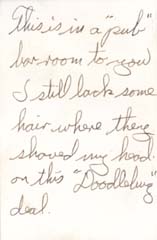 This is in a "pub"
bar room to you
I still lack some
hair where they
shaved my head
on this "Doodlebug"
deal.